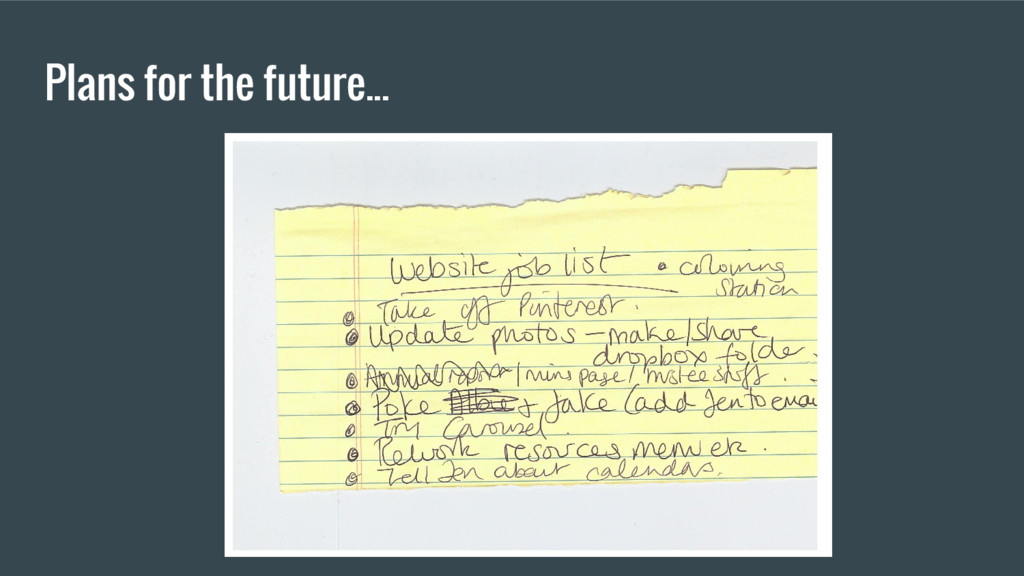 Plans for the future...
Website job list • colouring
station
• Take off Pinterest.
• Update photos - make/share
dropbox folder.
• Annual report / mins page / trustee stuff.
• Poke + Jake (add Jen to emai
• Try Carousel.
• Rework resources menu etc.
• Tell Jen about calendars.